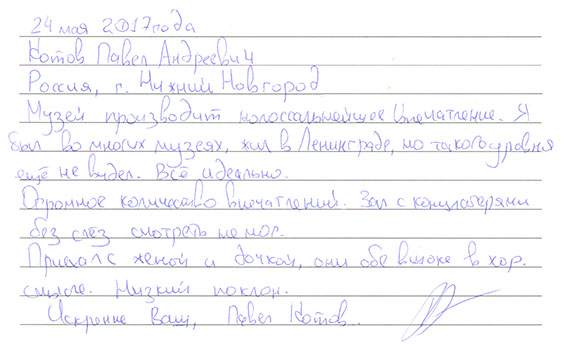 24 мая 2017 года
Котов Павел Андреевич
Россия, г. Нижний Новгород
Музей производит колоссальнейшее впечатление. Я
был во многих музеях, жил в Ленинграде, но такого уровня
ещё не видел. Всё идеально.
Огромное количество впечатлений. Зал с концлагерями
без слёз смотреть не мог.
Приехал с женой и дочкой, они обе в шоке в хор.
смысле. Низкий поклон.
Искренне Ваш, Павел Котов.